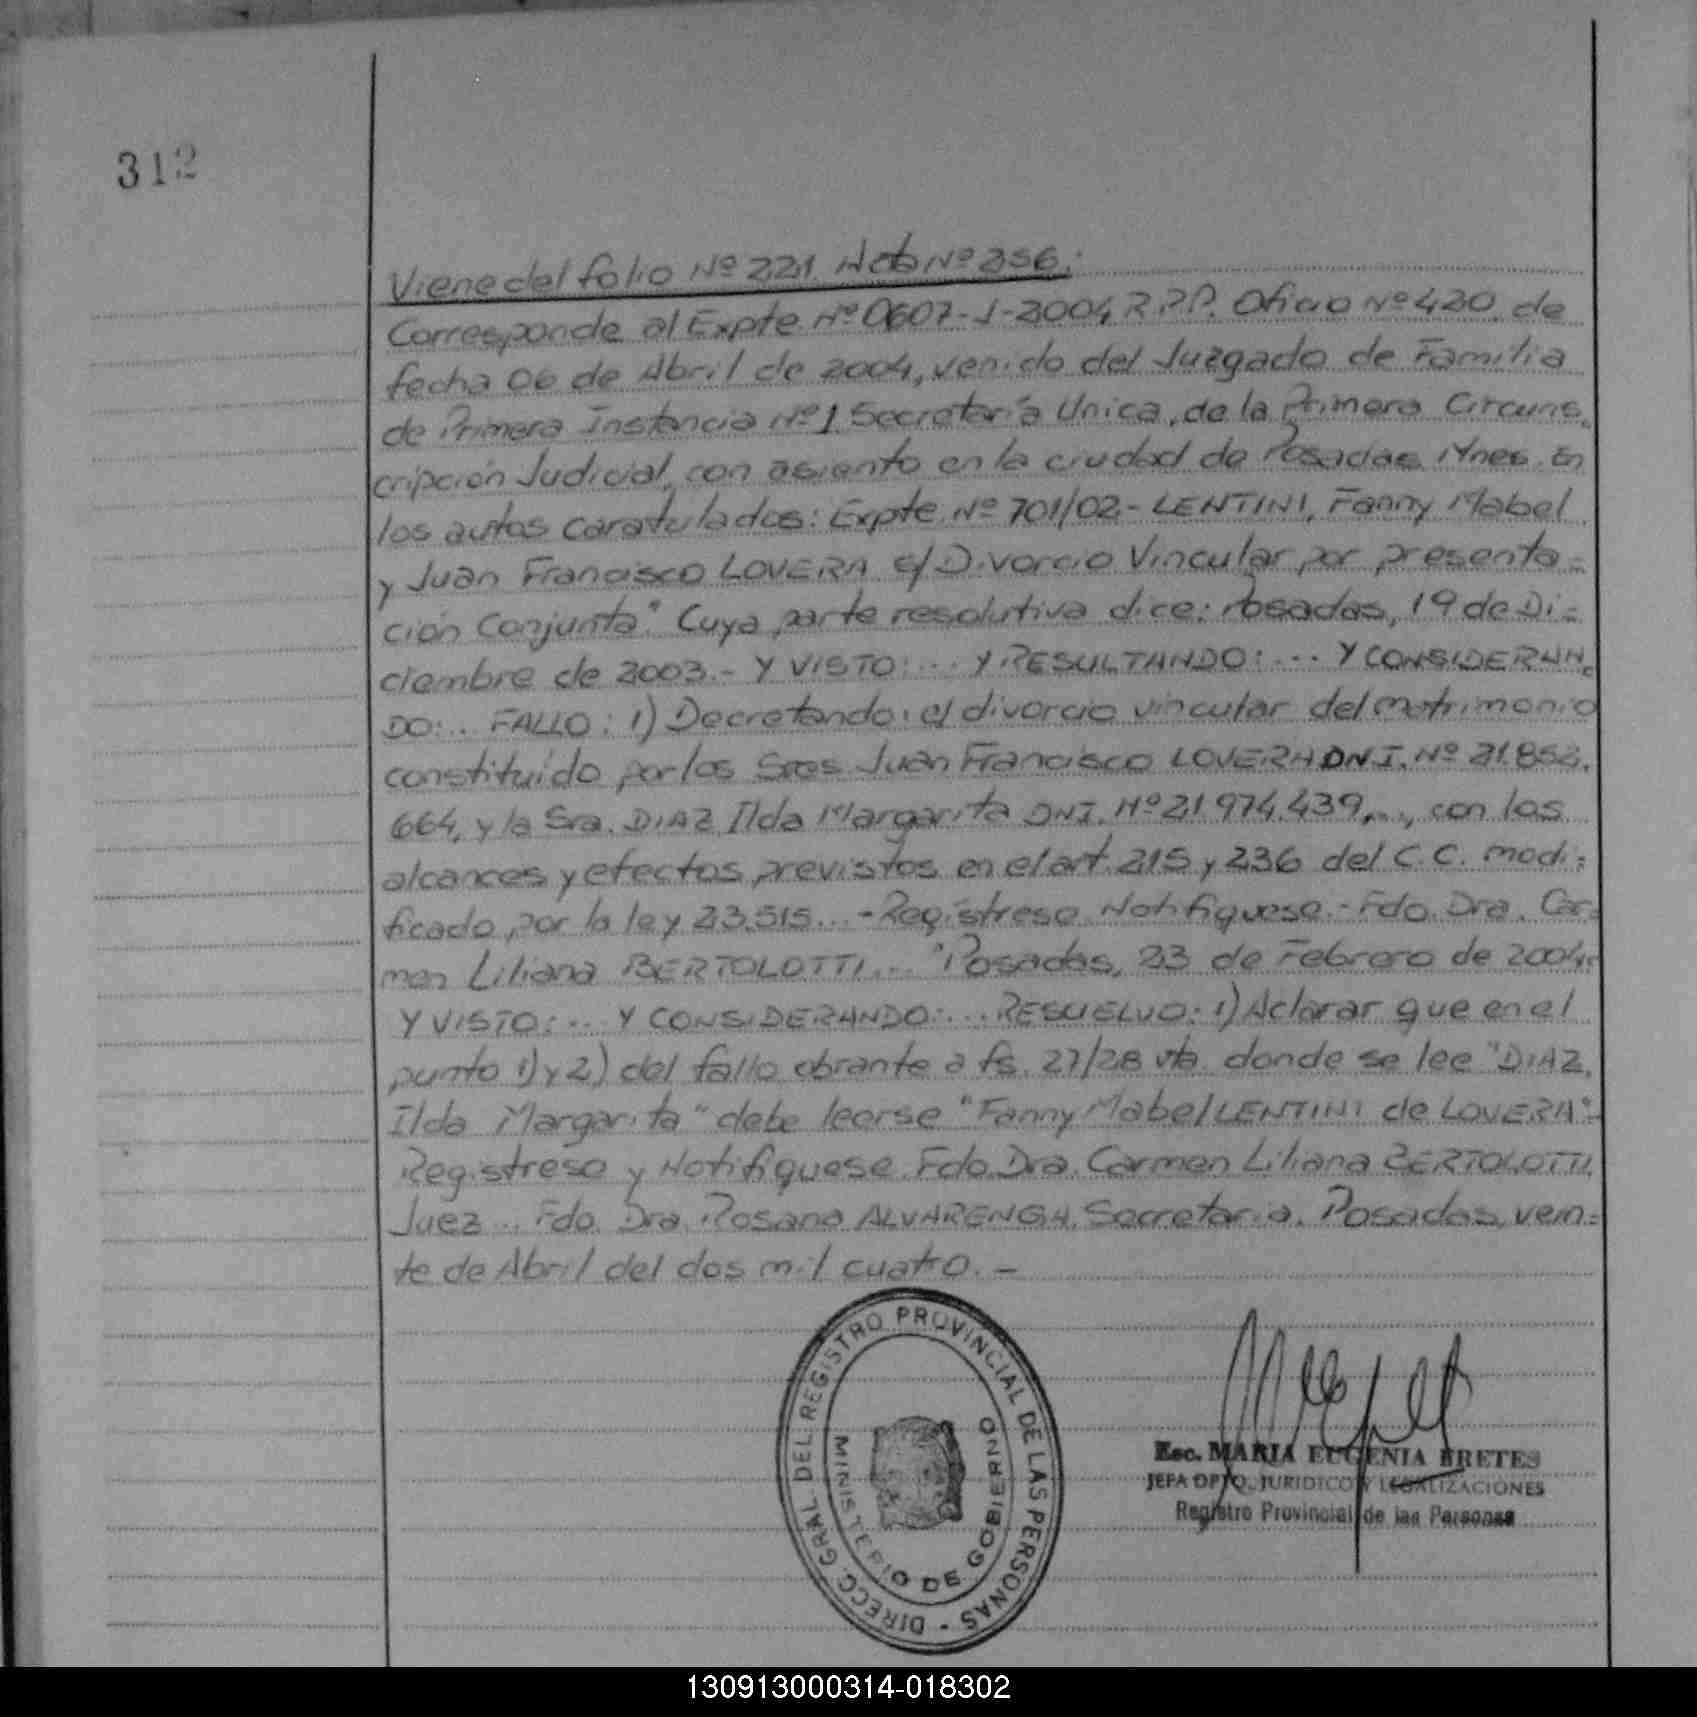 312
Viene del folio Nº 221 Acta Nº 256.
Corresponde al Expte. Nº 0607-J-2004 R.P.P. Oficio Nº 420. de
fecha 06 de Abril de 2004, venido del Juzgado de Familia
de Primera Instancia Nº 1 Secretaría Unica, de la Primera Circuns
cripción Judicial, con asiento en la ciudad de Posadas Mnes. En
los autos caratulados: Expte. Nº 701/02 - LENTINI, Fanny Mabel
y Juan Francisco LOVERA s/ Divorcio Vincular por presenta-
ción Conjunta". Cuya parte resolutiva dice: Posadas, 19 de Di-
ciembre de 2003.- Y VISTO:... Y RESULTANDO:... Y CONSIDERAN
DO:.. FALLO: 1) Decretando: el divorcio vincular del matrimonio
constituído por los Sres Juan Francisco LOVERA DNI. Nº 21.852.
664, y la Sra. DIAZ Ilda Margarita DNI. Nº 21 974.439,..., con los
alcances y efectos previstos en el art. 215 y 236 del C.C. modi-
ficado por la ley 23.515...- Regístrese Notifiquese.- Fdo. Dra. Car-
men Liliana BERTOLOTTI... "Posadas, 23 de Febrero de 2004.
Y VISTO:... Y CONSIDERANDO:... RESUELVO: 1) Aclarar que en el
punto 1) y 2) del fallo obrante a fs. 27/28 vta. donde se lee "DIAZ,
Ilda Margarita" debe leerse "Fanny Mabel LENTINI de LOVERA"-
Registrese y Notifiquese. Fdo. Dra. Carmen Liliana BERTOLOTTI,
Juez... Fdo. Dra. Rosana ALVARENGA. Secretaria. Posadas, vein-
te de Abril del dos mil cuatro.-
DIRECC. GRAL. DEL REGISTRO PROVINCIAL DE LAS PERSONAS -
MINISTERIO DE GOBIERNO
Esc. MARIA EUGENIA BRETES
JEFA DPTO. JURIDICO Y LEGALIZACIONES
Registro Provincial de las Personas
130913000314-018302